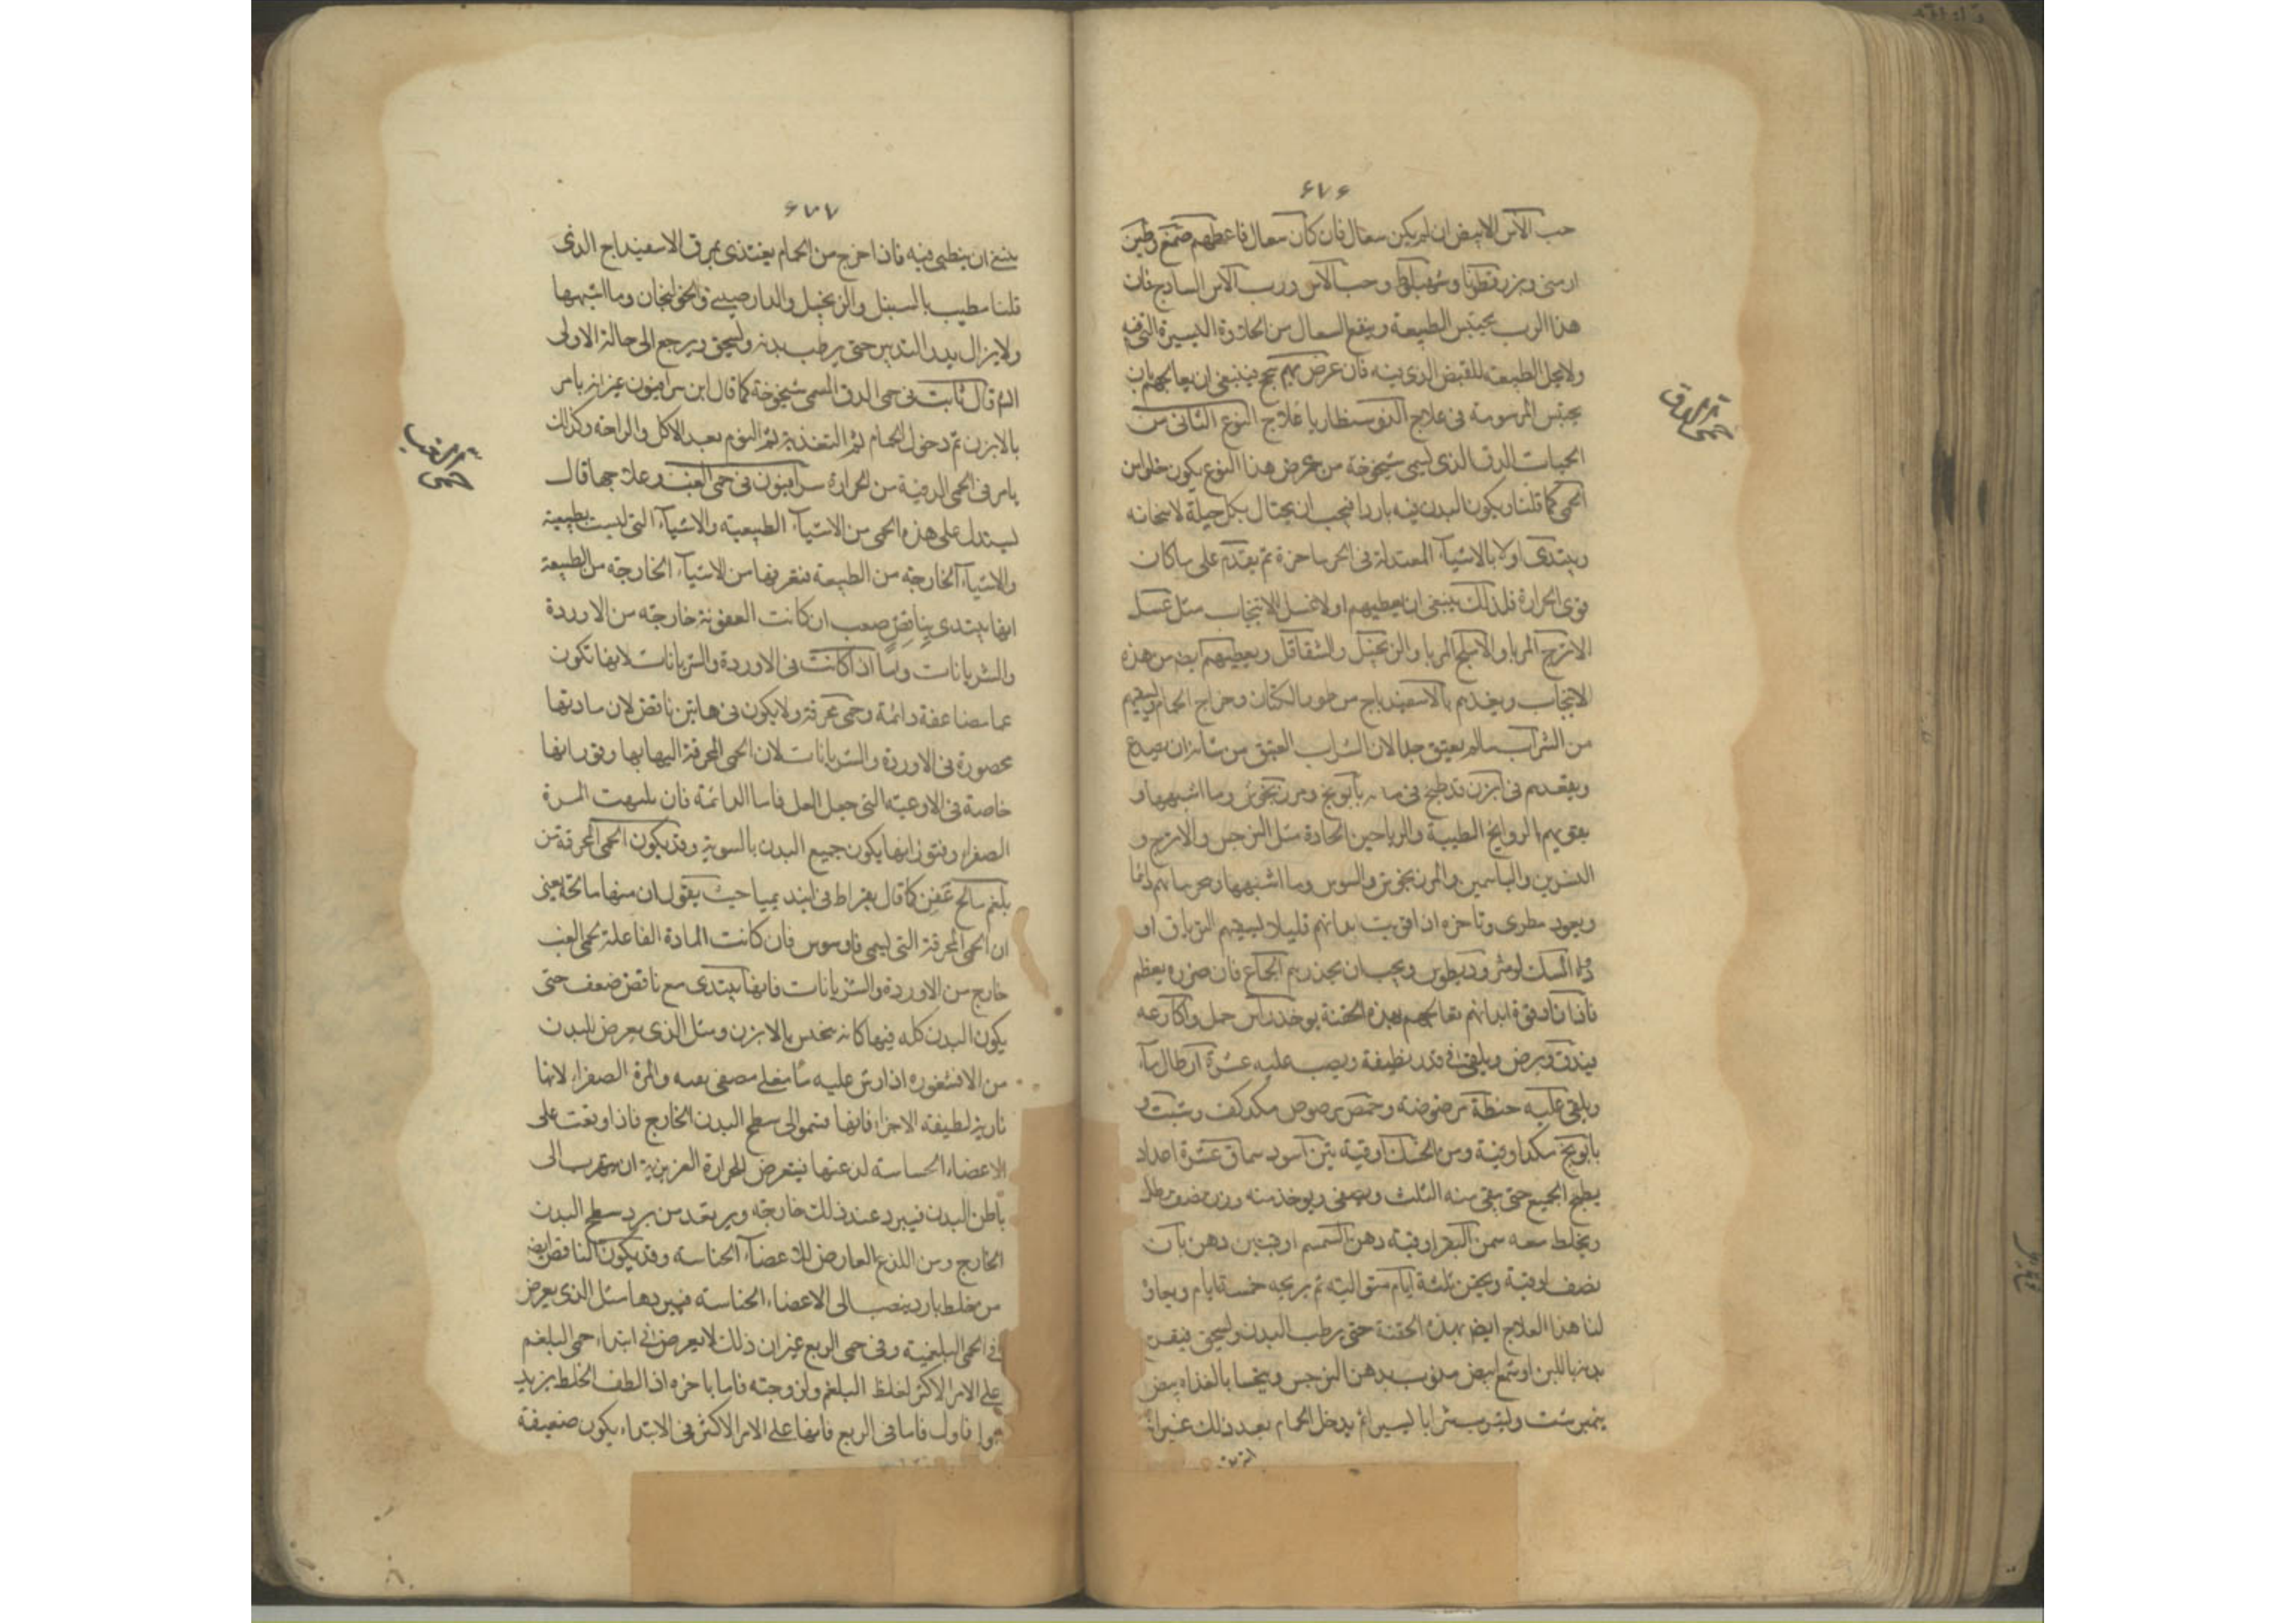 ۶۷۶
حب الآس الابيض ان لم يكن سعال فان كان سعال فاعطهم صمغ وطين
ارمنى وبزر قطونا وشاهبلوط وحب الآس ورب الآس الساذج فان
هذا الرب يحتبس الطبيعة وينفع السعال من الحلاوة اليسيرة التى فيه
ولا يحل الطبيعة للقبض الذى فيه فان عرض بهم سحج فينبغى ان يعالجهم بان
يحتبس المرسومة فى علاج الدوسنطاريا علاج النوع الثانى من
الحميات الدق الذى يسمى شيخوخة من عرض هذا النوع يكون خلوا من
الحمى كما قلنا ويكون البدن فيه باردا فيجب ان يحتال بكل حيلة لاسخانه
ويبتدى اولا بالاشيآء المعتدلة فى الحر باخرة ثم يقدم على ما كان
قوى الحرارة فلذلك ينبغى ان يعطيهم اولا عسل الانبجات مثل عسل
الاترج المربا والاملج المربا والزنجبيل والشقاقل ويعطيهم ايضا من هذه
الانبجات ويغديهم بالاسفيدباج من طور الكتان وخراج الحمام ويسقيهم
من الشراب مالم يعتق جدا لان الشراب العتيق من شانه ان يصدع
ويقعدهم فى ابزن قد طبخ فى مائه بابونج ومرزنجوش وما اشبهها و
يقويهم الروايح الطيبة والرياحين الحادة مثل النرجس والاترج و
النسرين والياسمين والمرزنجوش والسوسن وما اشبهها دائما
وبعود مطرى وباخره اذا قويت ابدانهم قليلا يسقيهم الترياق او
دواء المسك او مثروديطوس ويجب ان يحذرهم الجماع فان ضرره يعظم
فاذا قوة ابدانهم تعالجهم بهذه الحقنة يوخذ راس حمل واكارعه
فيدق ويرض ويلقى فى قدر نظيفة ويصب عليه عشرة ارطال مآء
ويلقى عليه حنطة مرضوضة وحمص مرضوض مكد كف وشبت و
بابونج مكد اوقية ومن الحسك اوقية تين اسود سمان عشرة اعداد
يطبخ الجميع حتى يبقى منه الثلث ويصفى ويوخذ منه وزن نصف رطل
ويخلط معه سمن البقر اوقية دهن السمسم اوقيتين دهن بان
نصف اوقية ويحقن ثلثة ايام متوالية ثم يريحه خمسة ايام ويعاود
لنا هذا العلاج ايضا بهذه الحقنة حتى يرطب البدن ويسخن فيقن
بدنه باللبن او شمع ابيض مذوب بدهن النرجس وينحسا بالغداه بيض
نيمبرشت ويشرب شرابا يسيرا ثم يدخل الحمام بعد ذلك غير انه
حمى الدق
۶۷۷
ينبغى ان يبطى فيه فاذا خرج من الحمام يغتذى بمرق الاسفيدباج الذى
قلنا مطيب بالسنبل والزنجبيل والدارصينى والخولنجان وما اشبهها
ولا يزال بهذا التدبير حتى يرطب بدنه ويسخن ويرجع الى حاله الاولى
قال ثابت فى حمى الدق المسمى شيخوخة كما قال ابن سرافيون غير انه يامر
بالابزن ثم دخول الحمام ثم التغذية ثم النوم بعد الاكل والراحة وكذلك
يامر فى الحمى الدقية من الحرارة سرافيون فى حمى الغب وعلاجها قال
يستدل على هذه الحمى من الاشيآء الطبيعية والاشيآء التى ليست بطبيعية
والاشيآء الخارجة من الطبيعة فتعريفها من الاشيآء الخارجة من الطبيعة
انها تبتدى بنافض صعب ان كانت العفونة خارجة من الاوردة
والشريانات واما اذا كانت فى الاوردة والشريانات لانها تكون
غبا مضاعفة دائمة وحمى محرقة ولا يكون فى هاتين نافض لان مادتها
محصورة فى الاوردة والشريانات لان الحمى المحرقة الهابها وفورانها
خاصة فى الاوعية التى حول القلب فاما الدائمة فان تلهب المرة
الصفرا وفتورانها يكون جميع البدن بالسوية وقد يكون الحمى المحرقة من
بلغم مالح عفن كما قال بقراط فى ابيديميا حيث يقول ان منها مالحة يعنى
ان الحمى المحرقة التى تسمى قاوسوس فان كانت المادة الفاعلة لحمى الغب
خارج من الاوردة والشريانات فانها تبتدى مع نافض ضعف حتى
يكون البدن كله فيها كانه ينخس بالابر ومثل الذى يعرض للبدن
من الاقشعرره اذا رش عليه مآء مغلى والمرة الصفرا لانها
نارية لطيفة الاجزاء فانها تنمو الى سطح البدن الخارج فاذا وقعت على
الاعضاء الحساسة لدغتها فيعرض للحرارة الغريزية ان تهرب الى
باطن البدن فيبرد عند ذلك خارجه ويرتعد من برد سطح البدن
الخارج ومن اللذع العارض للاعضآء الحساسة وقد يكون النافض ايضا
من خلط بارد ينصب الى الاعضاء الحساسة فيبردها مثل الذى يعرض
فى الحمى البلغمية وفى حمى الربع غير ان ذلك لا يعرض فى ابتداء حمى البلغم
على الامر الاكثر لغلظ البلغم ولزوجته فاما باخره اذا لطف الخلط يزيد
اولا فاول فاما فى الربع فانها على الامر الاكثر فى الابتداء يكون ضعيفة
حمى الغب